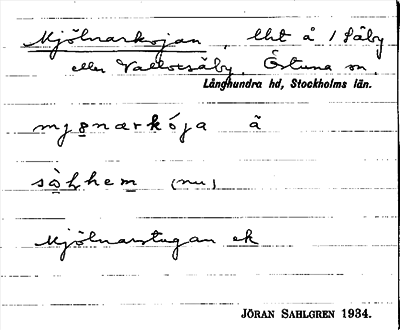 Mjölnarkojan, lht å 1 Säby
eller Vallbysäby, Östuna sn,
Långhundra hd, Stockholms län.
mjønærkója å
sòłhem (nu)
Mjölnarstugan ek
JÖRAN SAHLGREN 1934.